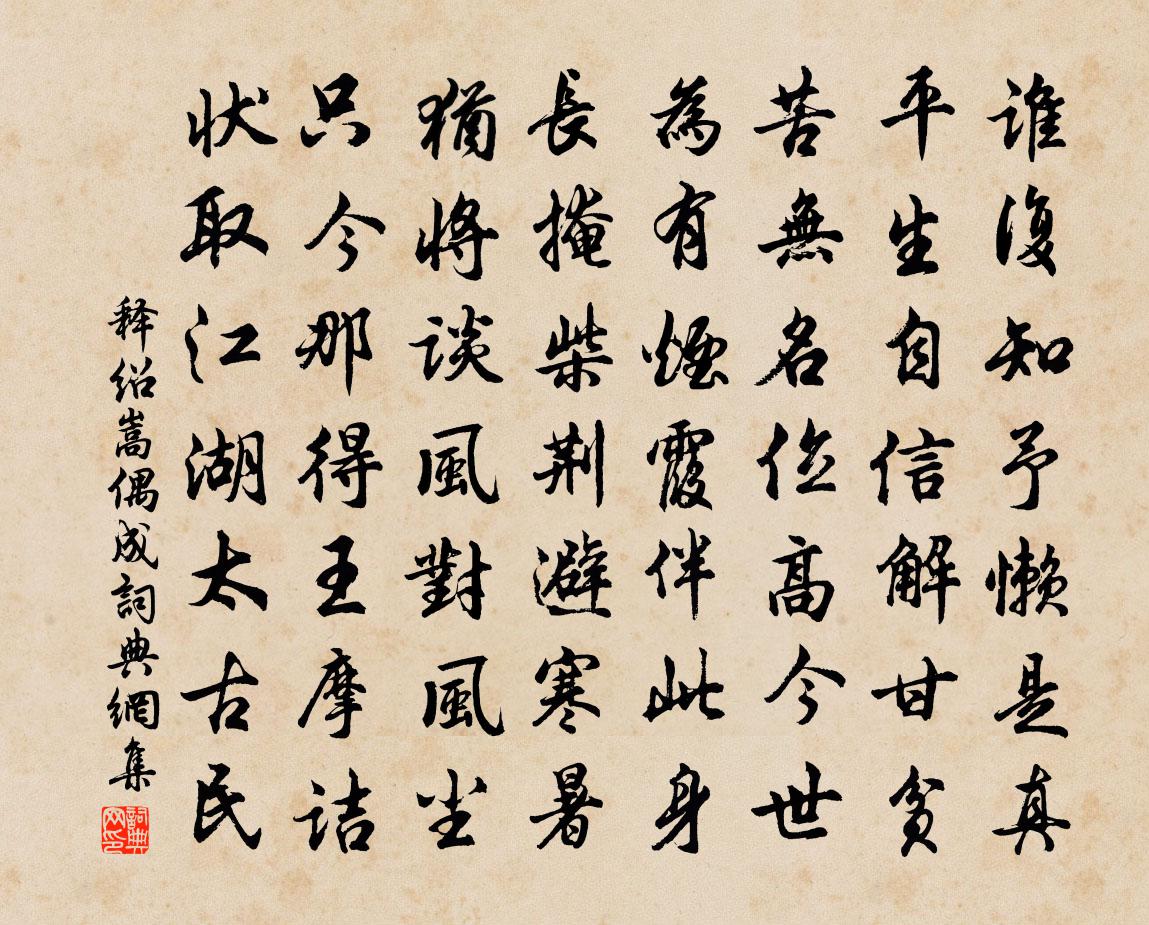 誰復知予懶是真
平生自信解甘貧
苦無名位高今世
為有煙霞伴此身
長掩柴荊避寒暑
猶將談風對風尘
只今那得王摩詰
狀取江湖太古民
释绍嵩偶成詞典網集
詞典网印